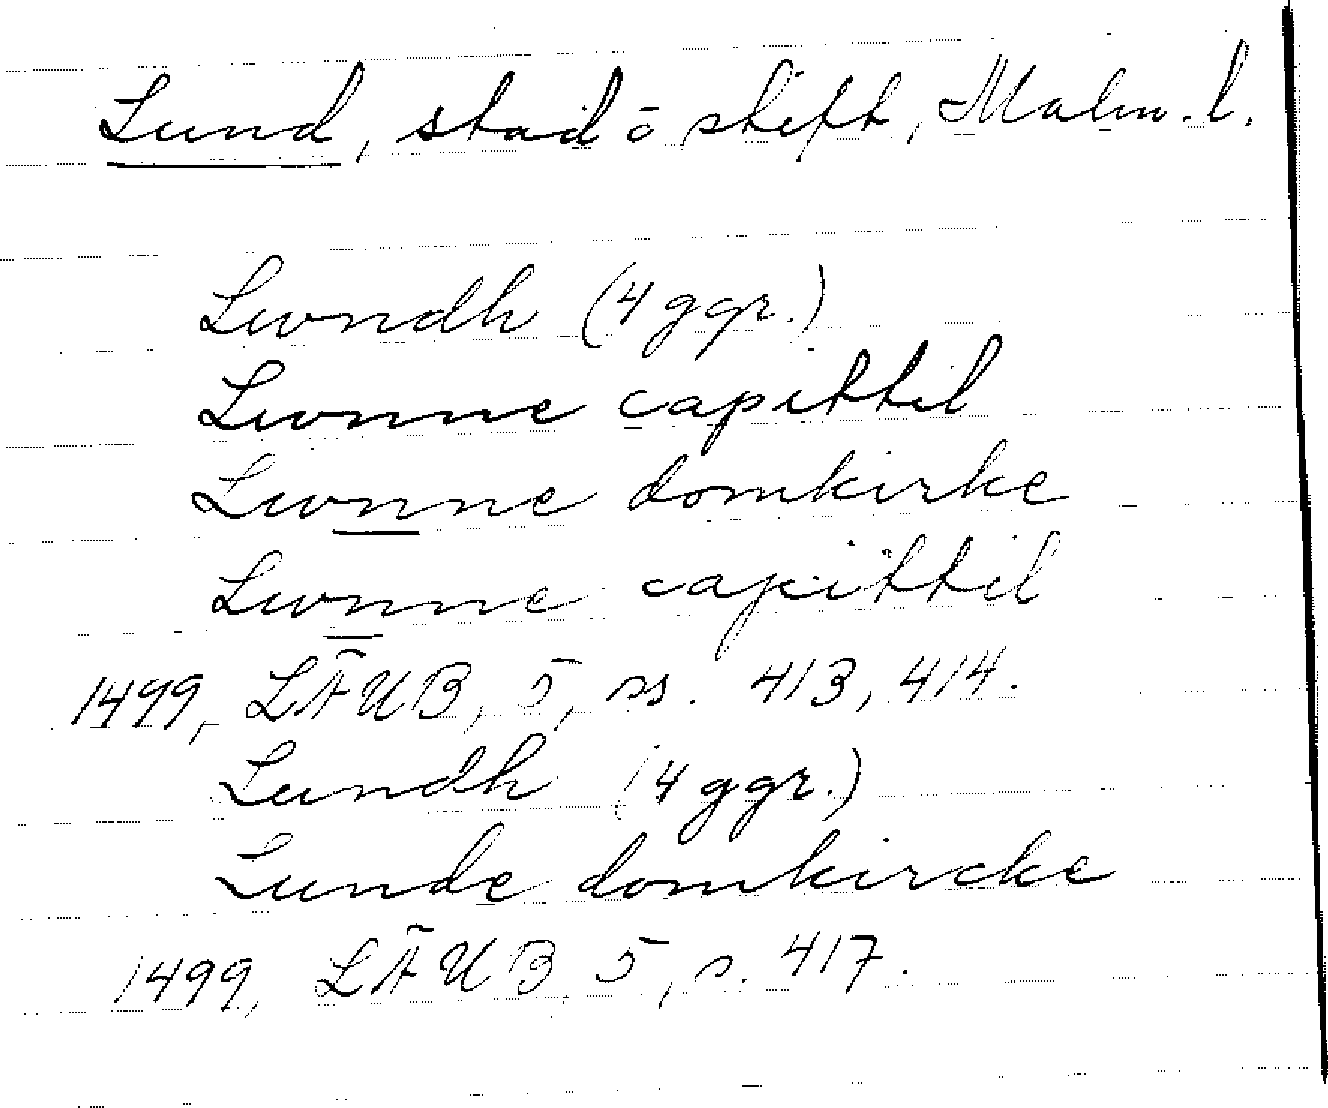 Lund, stad ō stift, Malm. l.
Lwndh (4 ggr.)
Lwnne capittil
Lwnne domkirke
Lwnne capittil
1499, LÄUB, 5, ss. 413, 414.
Lundh (4 ggr.)
Lunde domkircke
1499, LÄUB 5, s. 417.